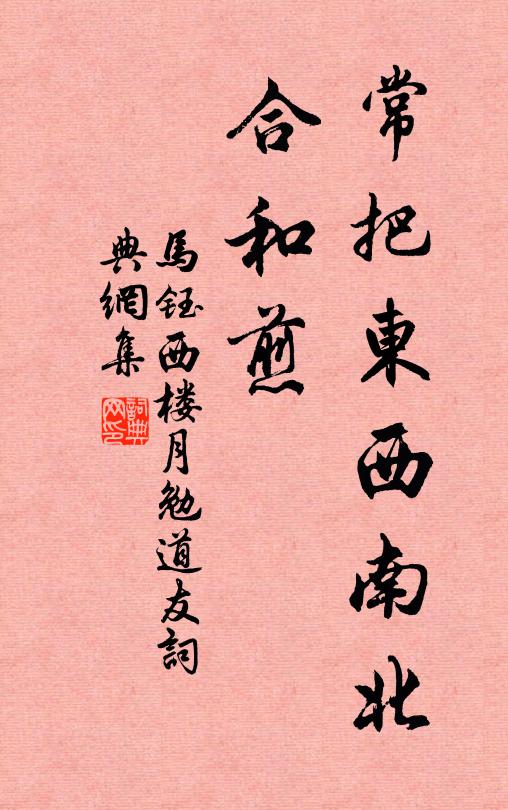 常把東西南北
合和煎
馬鈺西楼月勉道友詞
典網集
詞典網印